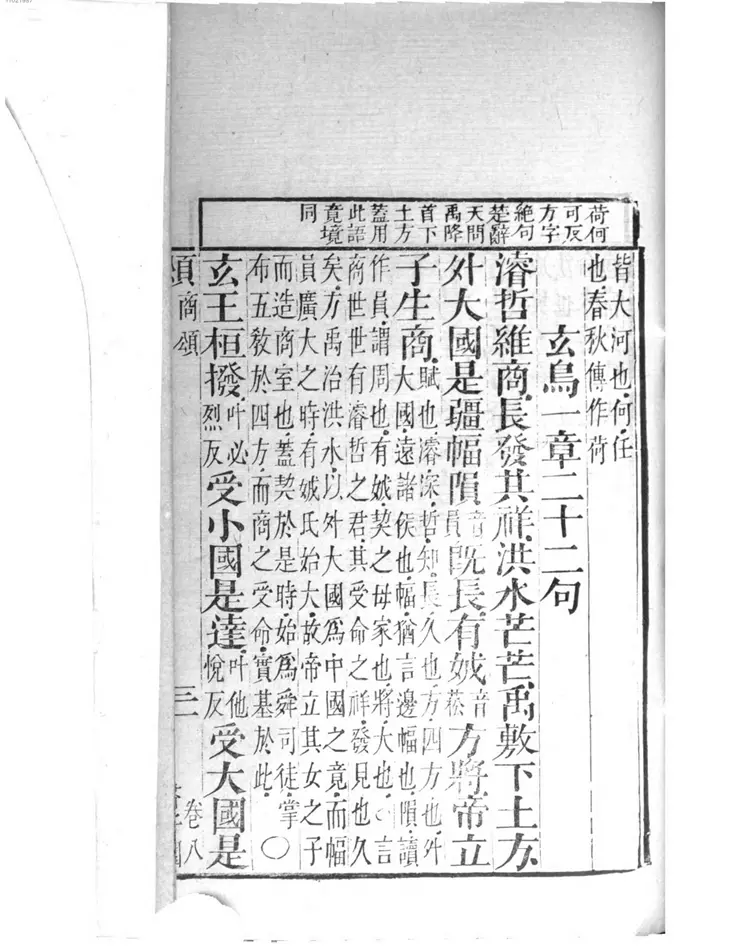 荷何
可反
方字
絶句
楚辭
天問
禹降
首下
土方
蓋用
此語
竟境
同
皆大河也何任
也春秋傳作荷
玄鳥一章二十二句
濬哲維商長發其祥洪水芒芒禹敷下土方
外大國是疆幅隕音員既長有娀音菘方將帝立
子生商賦也濬深哲知長久也方四方也外
大國遠諸侯也幅猶言邊幅也隕讀
作員謂周也有娀契之母家也將大也○言
商世世有濬哲之君其受命之祥發見也久
矣方禹治洪水以外大國爲中國之竟而幅
員廣大之時有娀氏始大故帝立其女之子
而造商室也蓋契於是時始爲舜司徒掌
布五敎於四方而商之受命實基於此○
玄王桓撥叶必烈反受小國是達叶他悅反受大國是
商頌
卷八